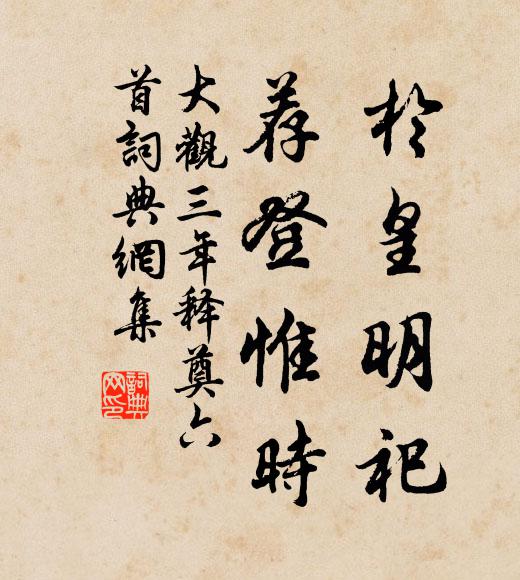 於皇明祀
荐登惟時
大觀三年釋奠六
首詞典網集
詞典網印